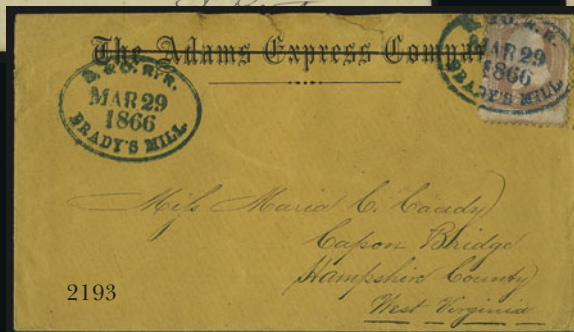 The Adams Express Company
B. & O. R.R.
MAR 29
1866
BRADY'S MILL
B. & O. R.R.
MAR 29
1866
BRADY'S MILL
Miss Maria C. Caudy
Capon Bridge
Hampshire County
West Virginia
2193